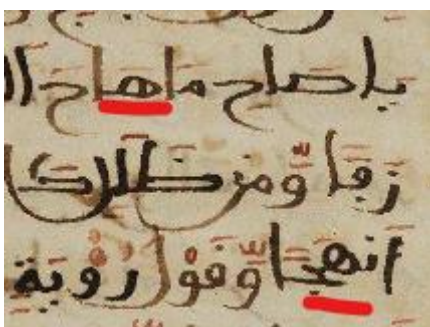 يا صاح ما هاج ا
رفا ومن طلل ك
انهجا وقول رؤبة